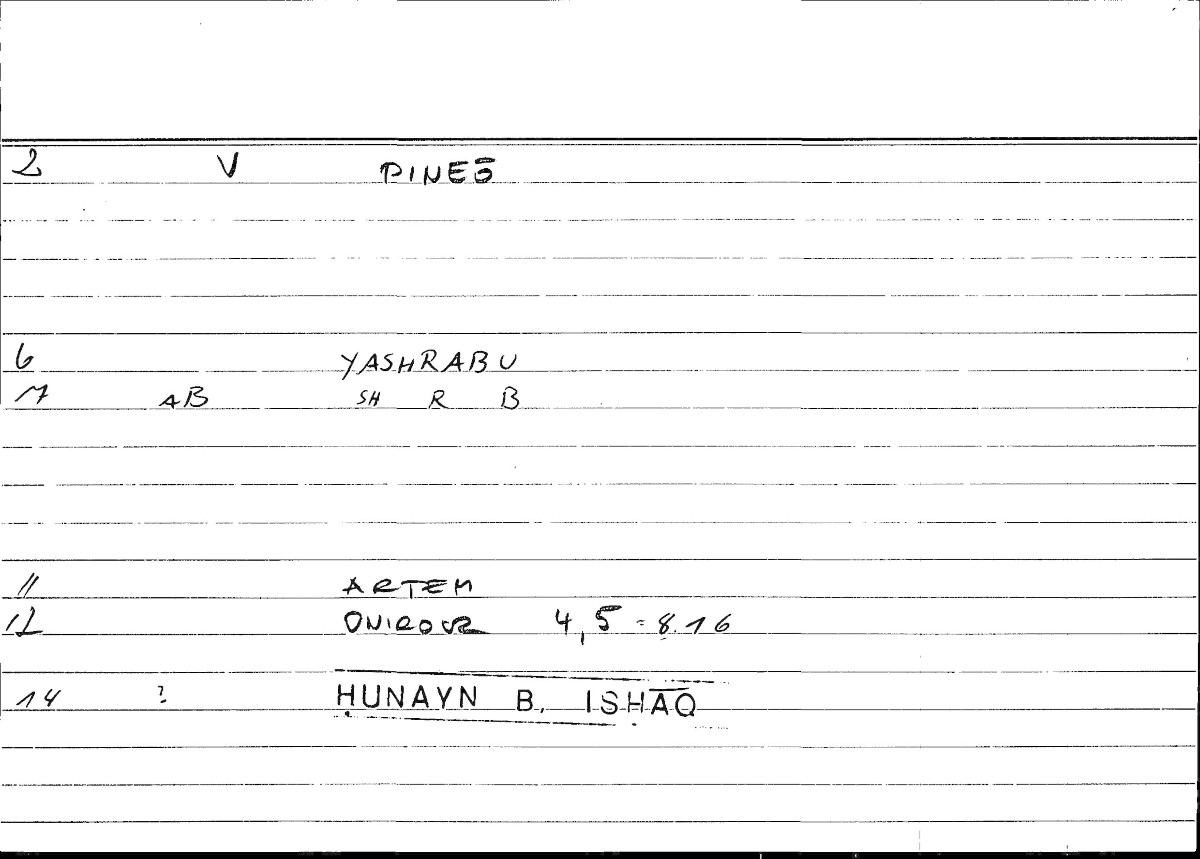 2 V PINEŌ
6 YASHRABU
7 AB SH R B
11 ARTEM
12 ONIROCR 4,5 = 8.16
14 ? ḤUNAYN B. ISḤĀQ